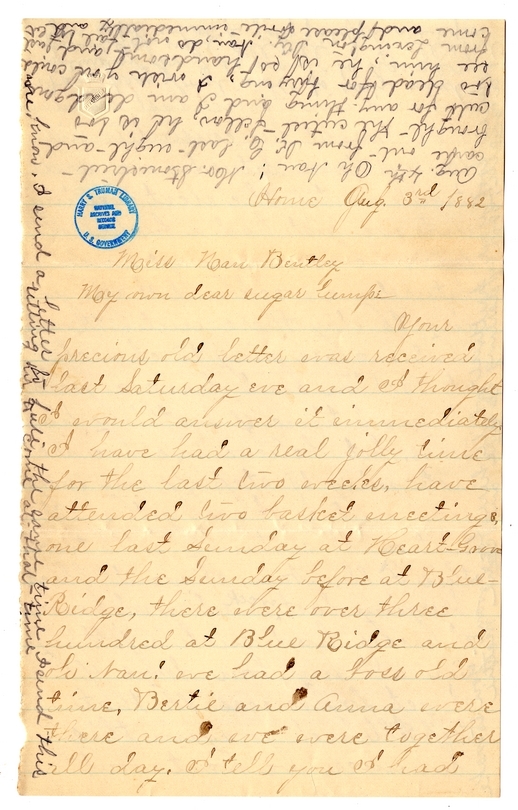 Home Aug. 3rd 1882
Miss Nan Bentley
My own dear sugar lump:
Your
precious old letter was received
last Saturday eve and I thought
I would answer it immediately
I have had a real jolly time
for the last two weeks, have
attended two basket meetings,
one last Sunday at Heart-Grove
and the Sunday before at Blue-
Ridge, there were over three
hundred at Blue Ridge and
oh Nan! we had a boss old
time, Bertie and Anna were
there and we were together
all day. I tell you I had
Aug. 4th Oh Nan! Mr.
came out from K. C. last night and
brought the cutest fellow, he is too
cute for any thing and I am
too dead for
see him, he is
from Lexington
come and please write immediately
you know, I send a letter
to
the same time I send this
at that time
HARRY S. TRUMAN LIBRARY
NATIONAL
ARCHIVES AND
RECORDS
SERVICE
U. S. GOVERNMENT